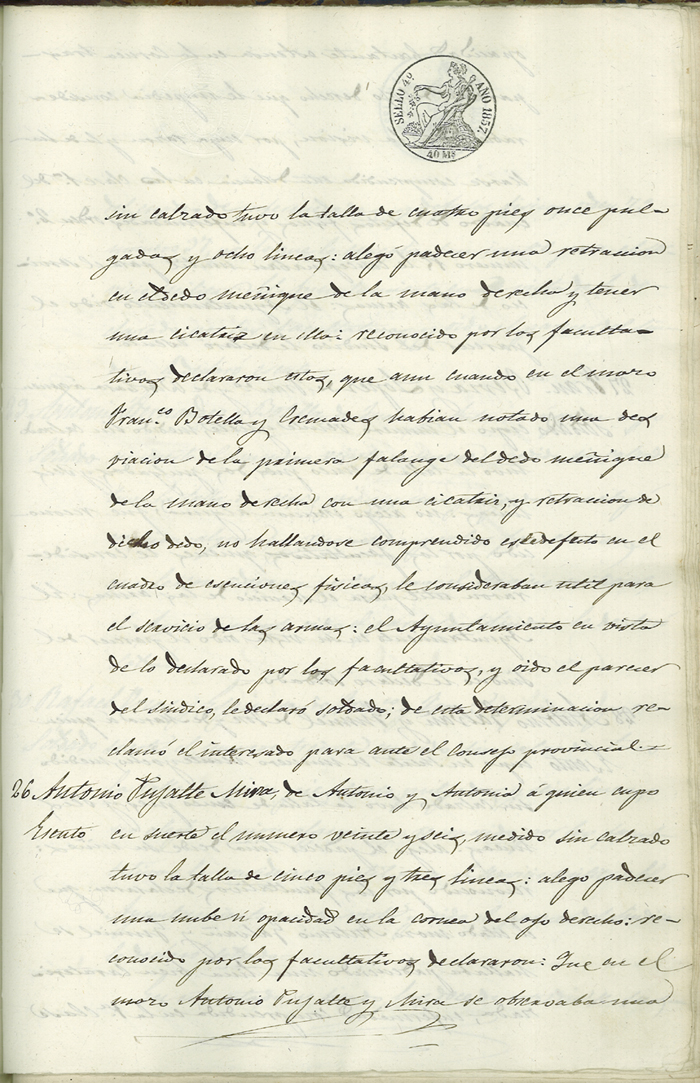 SELLO 4º AÑO 1857.
40 Ms
sin calzado tuvo la talla de cuatro pies once pul-
gadas y ocho lineas: alegó padecer una retraccion
en el dedo meñique de la mano derecha y tener
una cicatriz en ella: reconocido por los faculta-
tivos declararon estos, que aun cuando en el mozo
Fran.co Botella y Cremades habian notado una des
viacion de la primera falange del dedo meñique
de la mano derecha con una cicatriz, y retraccion de
dicho dedo, no hallandose comprendido este defecto en el
cuadro de esenciones fisicas, le consideraban util para
el servicio de las armas: el Ayuntamiento en vista
de lo declarado por los facultativos, y oido el parecer
del Sindico, le declaró soldado; de esta determinacion re-
clamó el interesado para ante el Consejo provincial.=
26 Antonio Pujalte Mira, de Antonio y Antonia á quien cupo
Esento en suerte el numero veinte y seis, medido sin calzado
tuvo la talla de cinco pies y tres lineas: alego padecer
una nube ú opacidad en la cornea del ojo derecho: re-
conocido por los facultativos declararon: Que en el
mozo Antonio Pujalte y Mira se observaba una